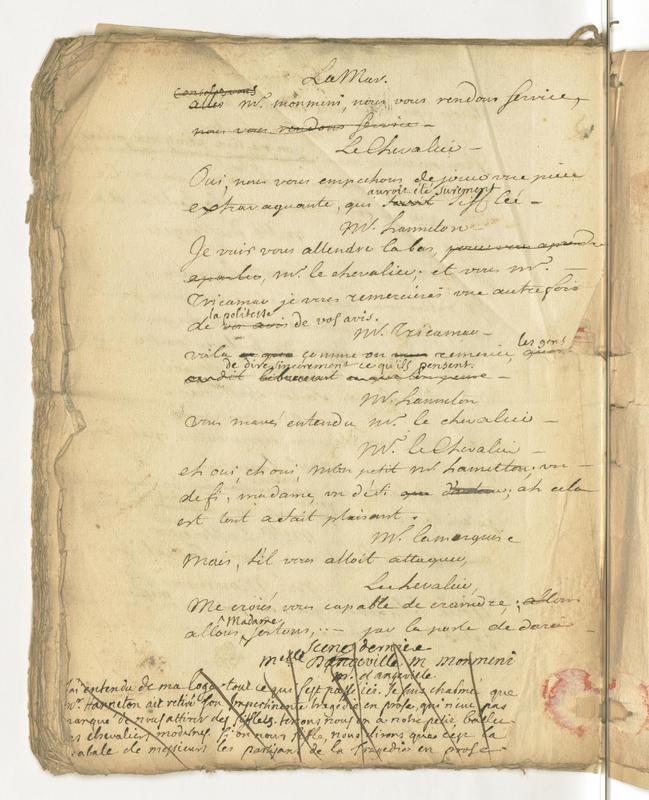 La Mar.
consolez vous
allés mr. monmeni, nous vous rendons service,
nous vous rendons service —
Le Chevalier —
Oui, nous vous empechons de jouer une piece
auroit été surement
extravaguante, qui seroit sifflée —
Mr. hanneton
Je vais vous attendre la bas, pour vous aprendre
a parler, Mr. le chevalier; et vous Mr. —
Tricamar je vous remercierai une autre fois
la politesse
de vos avis de vos avis.
Mr. Tricamar —
voila comme on remercie, les gens
de dire sincerement ce qu'ils pensent.
on dit —
Mr. hanneton
vous m'avés entendu Mr. le chevalier —
Mr. le Chevalier —
eh oui, eh oui, mon petit mr. hanneton, un —
defi, madame, un défi ; ah cela
est tout a fait plaisant.
Me. la marquise
Mais, s'il vous alloit attaquer,
Le chevalier,
Me croiés vous capable de craindre; allons
Madame
allons sortons, ... par la porte de dare —
Scene derniere
Melle Dangeville M monmeni
Mr. dangeville
J'ai entendu de ma loge tout ce qui s'est passé ici. Je suis charmé que
Mr. Hanneton ait retiré son impertinente tragedie en prose, qui n'eut pas
manqué de nous attirer des sifflets. tenons nous en a notre petit
chevaliers modernes. Si on nous sifle, nous dirons que c'est la
cabale de messieurs les partisans de la tragedie en prose.